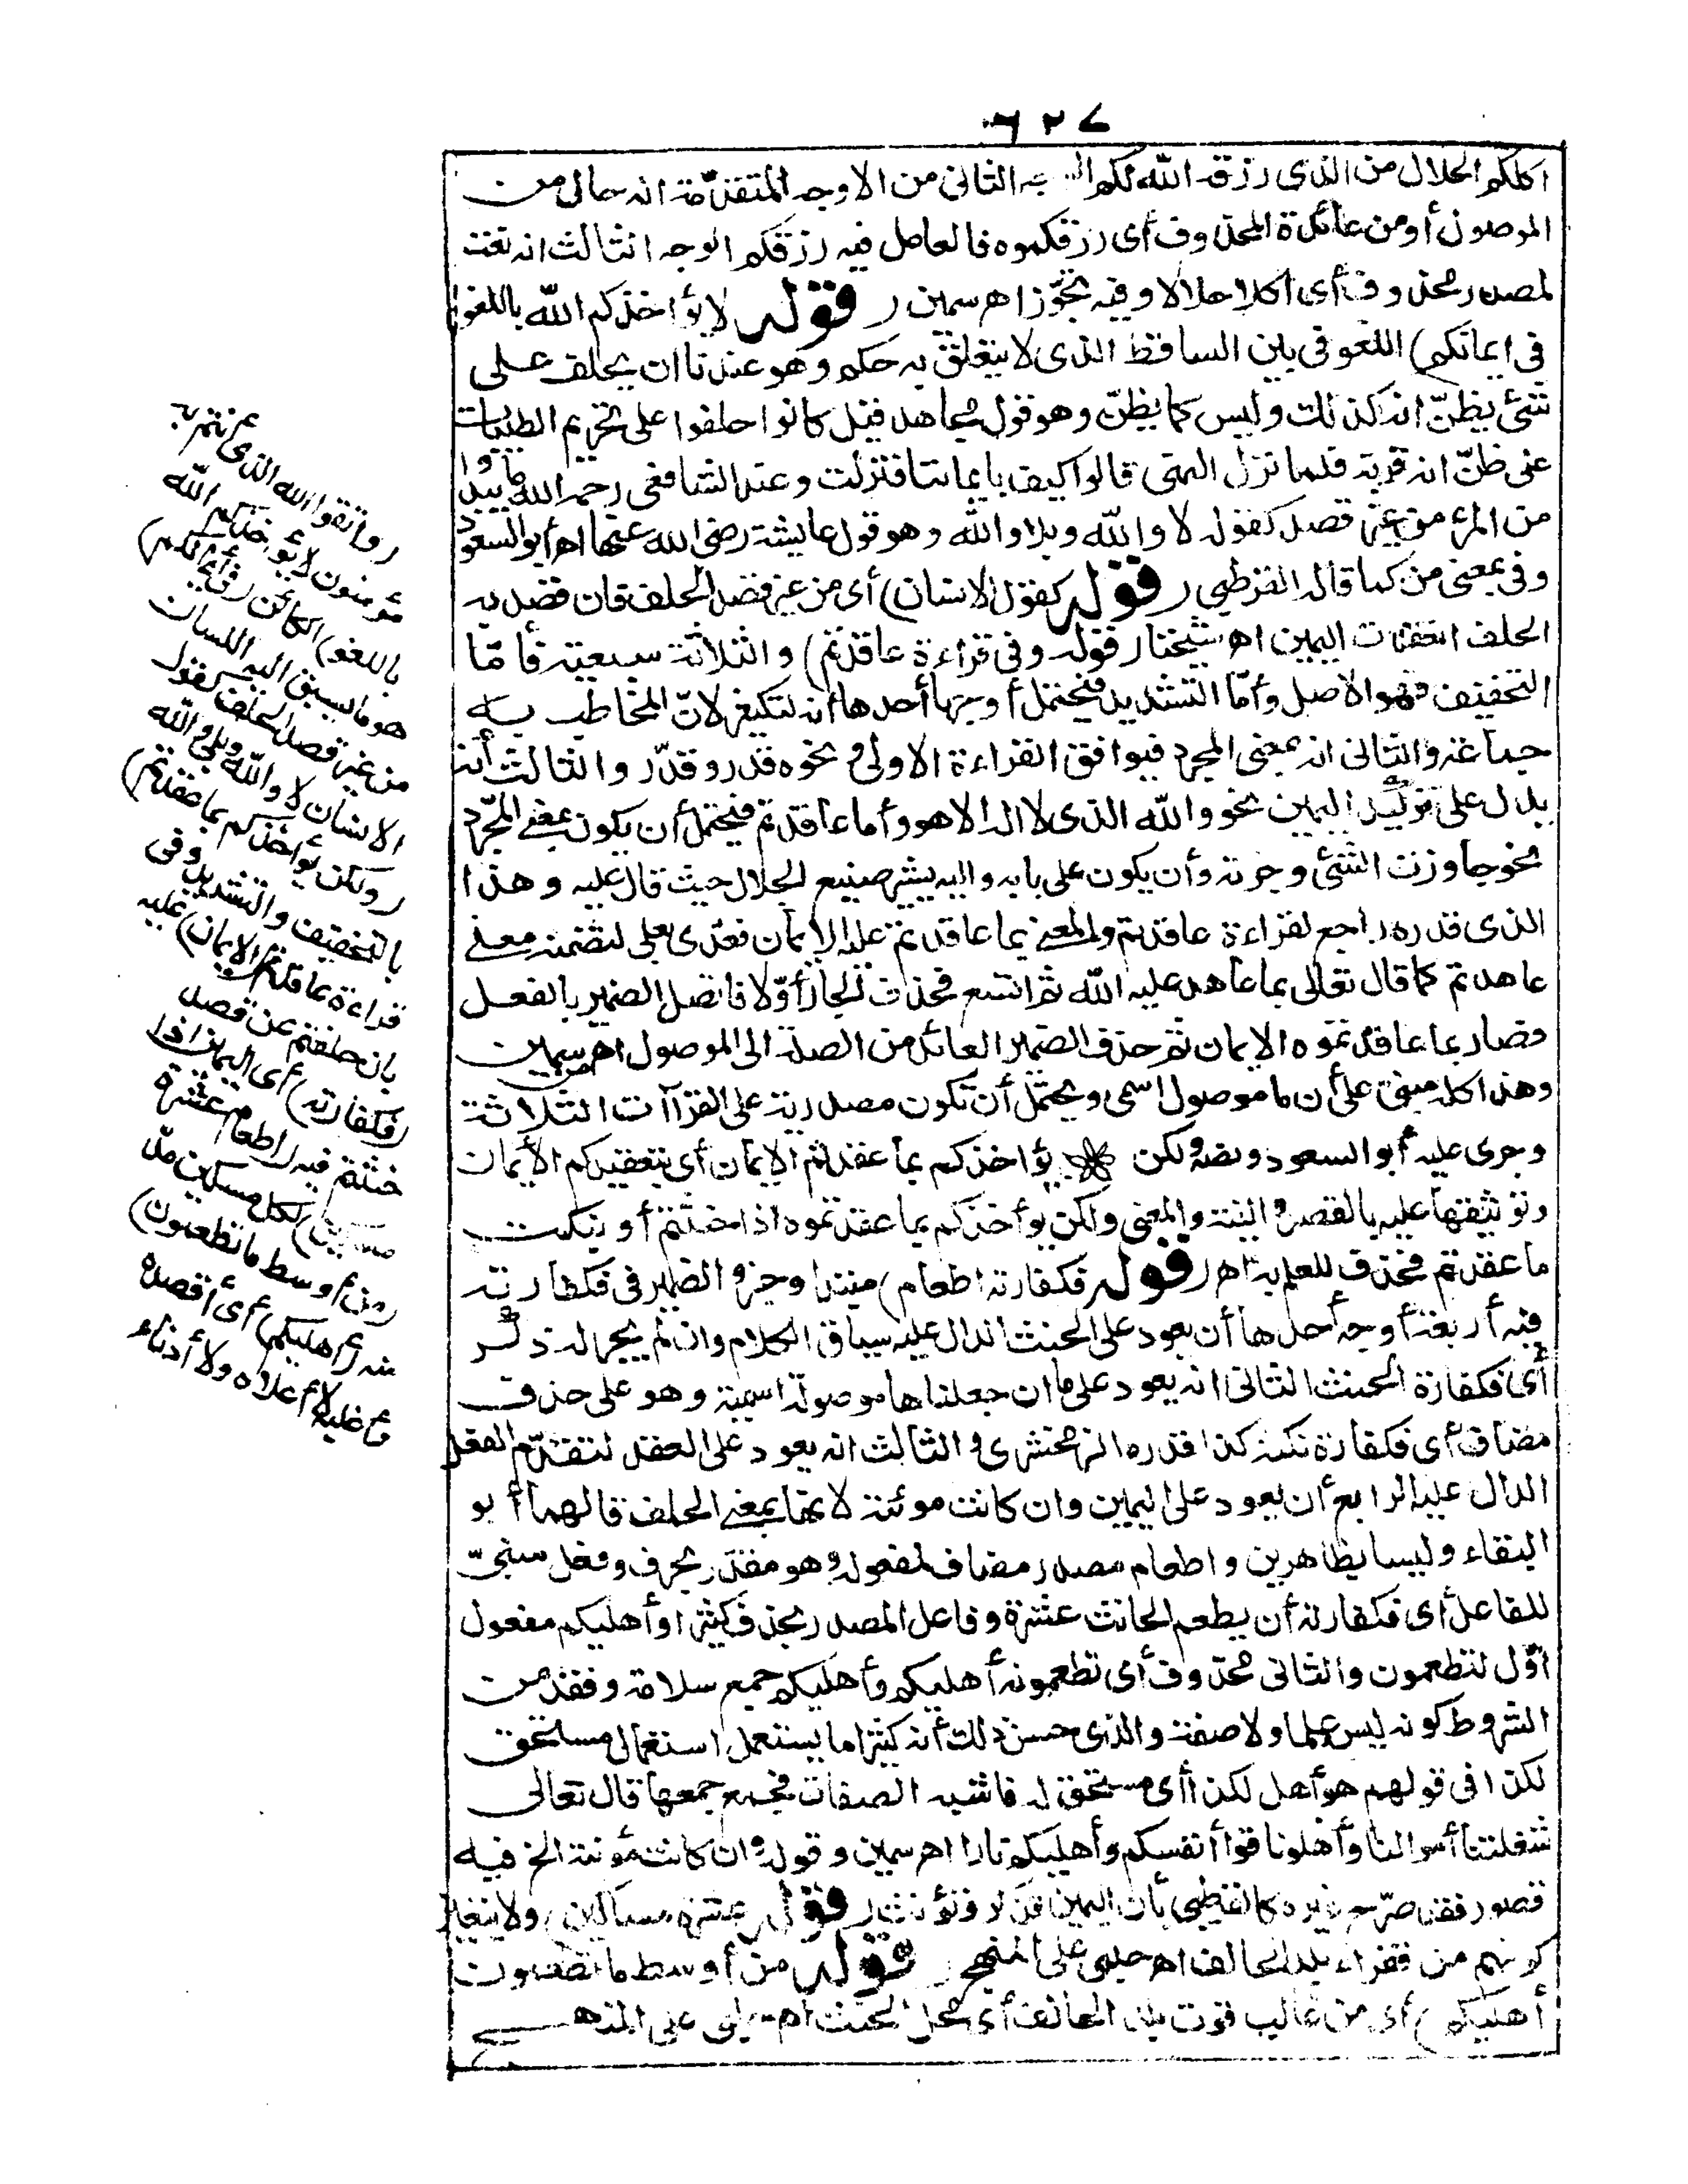 ٦٢٧
اكلكم الحلال من الذى رزقه الله لكم الثانى من الاوجه المتقدّمة انه حال من
الموصول أو من عائده المحذوف أى رزقكموه فالعامل فيه رزقكم الوجه الثالث انه نعت
لمصدر محذوف أى اكلا حلالا وفيه تجوّز اهـ سمين (قوله لا يؤاخذكم الله باللغو
فى ايمانكم) اللغو فى يمين الساقط الذى لا يتعلق به حكم وهو عندنا ان يحلف على
شئ يظنّ انه كذلك وليس كما يظنّ وهو قول مجاهد قيل كانوا حلفوا على تحريم الطيبات
على ظنّ انه قربة فلما نزل النهى قالوا كيف بايماننا فنزلت وعند الشافعى رحمه الله ما يبدوا
من المرء من غير قصد كقوله لا والله وبلا والله وهو قول عايشة رضى الله عنها اهـ أبو السعود
وفى بمعنى من كما قاله القرطبى (قوله كقول الانسان) أى من غير قصد الحلف فان قصد به
الحلف انعقدت اليمين اهـ شيخنا (قوله وفى قراءة عاقدتم) والثلاثة سبعية فأمّا
التخفيف فهو الاصل وأمّا التشديد فيحتمل أوجها أحدها أنه للتكثير لانّ المخاطب به
جماعة والثانى انه بمعنى المجرد فيوافق القراءة الاولى ونحوه قدر وقدّر والثالث أنه
يدل على توكيد اليمين نحو والله الذى لا اله الا هو وأما عاقدتم فيحتمل أن يكون بمعنى المجرّد
نحو جاوزت الشئ وجزته وأن يكون على بابه واليه يشير صنيع الجلال حيث قال عليه وهذا
الذى قدره راجع لقراءة عاقدتم والمعنى بما عاقدتم عليه الايمان فعدى بعلى لتضمنه معنى
عاهدتم كما قال تعالى بما عاهد عليه الله ثم اتسع فحذف الجار أوّلا فاتصل الضمير بالفعل
فصار بما عاقدتموه الايمان ثم حذف الضمير العائد من الصلة الى الموصول اهـ من سمين
وهذا كله مبنى على أن ما موصول اسمى ويحتمل أن تكون مصدرية على القراآت الثلاثة
وجرى عليه أبو السعود ونصه ولكن يؤاخذكم بما عقدتم الايمان أى بتعقيدكم الأيمان
وتوثيقها عليه بالقصد والنية والمعنى ولكن يؤاخذكم بما عقدتموه اذا حنثتم أو بنكث
ما عقدتم فحذف للعلم به اهـ (قوله فكفارته اطعام) مبتدا وخبر والضمير فى فكفارته
فيه أربعة أوجه أحدها أن يعود على الحنث الدال عليه سياق الكلام وان لم يجر له ذكر
أى فكفارة الحنث الثانى انه يعود على ما ان جعلناها موصولة اسمية وهو على حذف
مضاف أى فكفارة نكثه كذا قدره الزمخشرى والثالث انه يعود على العقد لتقدّم الفعل
الدال عليه الرابع أن يعود على اليمين وان كانت مؤنثة لانها بمعنى الحلف قالهما أبو
البقاء وليسا بظاهرين واطعام مصدر مضاف لمفعوله وهو مقدّر بحرف وفعل مبنىّ
للفاعل أى فكفارته أن يطعم الحانث عشرة وفاعل المصدر يحذف كثيرا وأهليكم مفعول
أوّل لتطعمون والثانى محذوف أى تطعمونه أهليكم وأهليكم جمع سلامة وفقد من
الشروط كونه ليس علما ولا صفة والذى حسن ذلك أنه كثيرا ما يستعمل استعمال مستحق
لكذا فى قولهم هو أهل لكذا أى مستحق له فاشبه الصفات فجمع جمعها قال تعالى
شغلتنا أموالنا وأهلونا قوا أنفسكم وأهليكم نارا اهـ سمين وقوله وان كانت مؤنثة الخ فيه
قصور فقد صرّح غيره كالقرطبى بأن اليمين تذكر وتؤنث (قوله عشرة مساكين) ولا يتعين
كونهم من فقراء بلد الحالف اهـ حلبى على المنهج (قوله من أوسط ما تطعمون
أهليكم) أى من غالب قوت بلد الحالف أى محل الحنث اهـ على المنهج
(واتقوا الله الذى أنتم به
مؤمنون لا يؤاخذكم الله
باللغو) الكائن (فى أيمانكم)
هو ما يسبق اليه اللسان
من غير قصد الحلف كقول
الانسان لا والله وبلى والله
(ولكن يؤاخذكم بما عقدتم)
بالتخفيف والتشديد وفى
قراءة عاقدتم (الايمان) عليه
بان حلفتم عن قصد
(فكفارته) أى اليمين اذا
حنثتم فيه (اطعام عشرة
مساكين) لكل مسكين مدّ
(من أوسط ما تطعمون)
منه (أهليكم) أى أقصده
وأغلبه لا أعلاه ولا أدناه